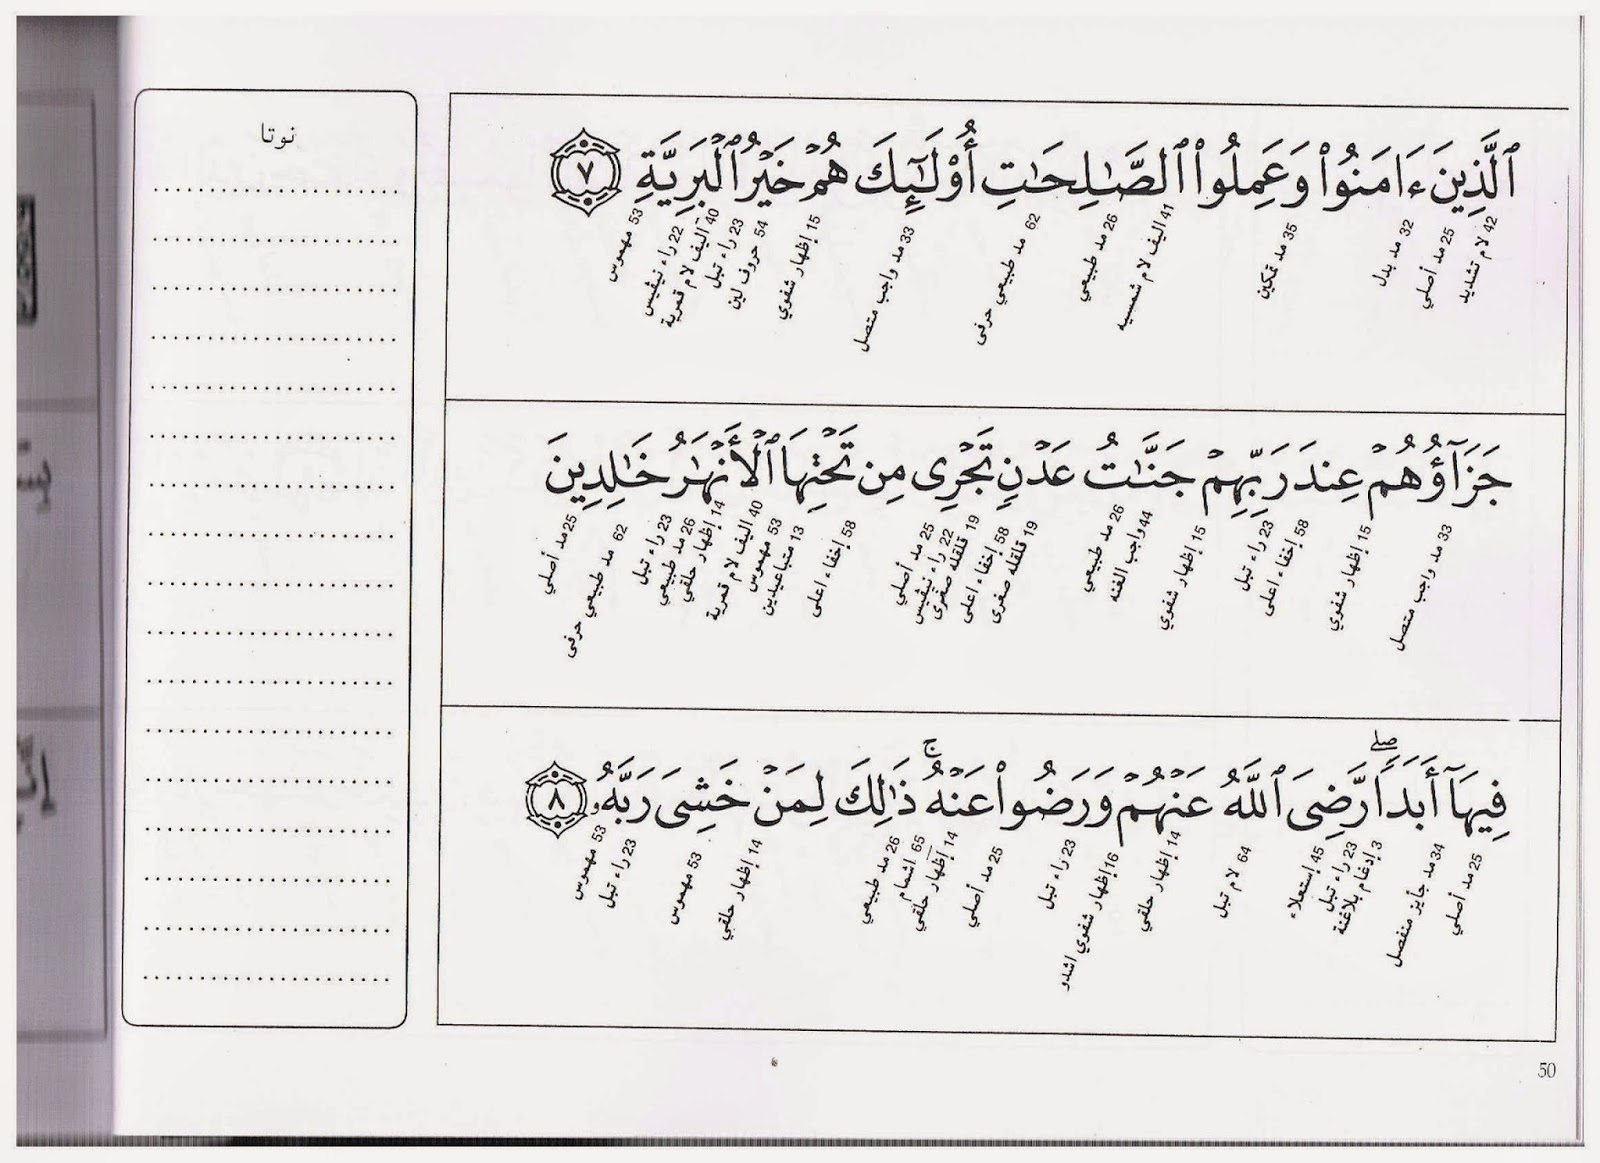 ٱلَّذِينَ ءَامَنُوا۟ وَعَمِلُوا۟ ٱلصَّـٰلِحَـٰتِ أُو۟لَـٰٓئِكَ هُمۡ خَيۡرُ ٱلۡبَرِيَّةِ ٧
42 لام تشديد
25 مد أصلي
32 مد بدل
35 مد تمكين
41 اليف لام شمسيه
26 مد طبيعي
62 مد طبيعي حرفى
33 مد واجب متصل
15 إظهار شفوي
54 حروف لين
23 راء تبل
40 اليف لام قمرية
22 راء نيفيس
53 مهموس
جَزَآؤُهُمۡ عِندَ رَبِّهِمۡ جَنَّـٰتُ عَدۡنٍ تَجۡرِى مِن تَحۡتِهَا ٱلۡأَنۡهَـٰرُ خَـٰلِدِينَ
33 مد واجب متصل
15 إظهار شفوي
58 إخفاء اعلى
23 راء تبل
15 إظهار شفوي
44 واجب الغنه
26 مد طبيعي
19 قلقله صغرى
58 إخفاء اعلى
19 قلقله صغرى
22 راء نيفيس
25 مد أصلي
58 إخفاء اعلى
13 متباعيدين
53 مهموس
40 اليف لام قمرية
14 إظهار حلقي
26 مد طبيعي
23 راء تبل
62 مد طبيعي حرفى
25 مد أصلي
فِيهَآ أَبَدًا ۖ رَّضِىَ ٱللَّهُ عَنۡهُمۡ وَرَضُوا۟ عَنۡهُ ۚ ذَٰلِكَ لِمَنۡ خَشِىَ رَبَّهُۥ ٨
25 مد أصلي
34 مد جأيز منفصل
3 إدغام بلاغنة
23 راء تبل
45 إستعلاء
64 لام تبل
14 إظهار حلقي
16 إظهار شفوي اشدو
23 راء تبل
25 مد أصلي
14 إظهار حلقي
65 اشمام
26 مد طبيعي
14 إظهار حلقي
53 مهموس
23 راء تبل
53 مهموس
نوتا
50